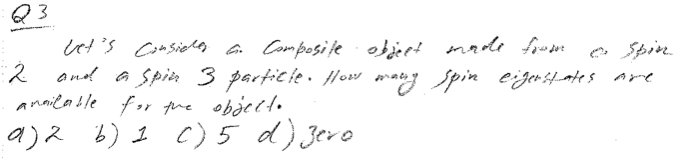 Q3
Let's Consider a Composite object made from a spin
2 and a spin 3 particle. How many spin eigenstates are
available for the object.
a) 2 b) 1 c) 5 d) zero